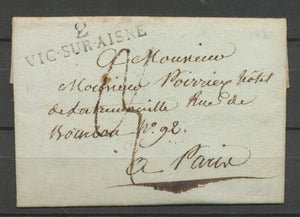 2
VIC-SUR-AISNE
A Monsieur
Monsieur Poirrier hôtel
de la Rue de
Nº 92.
à Paris